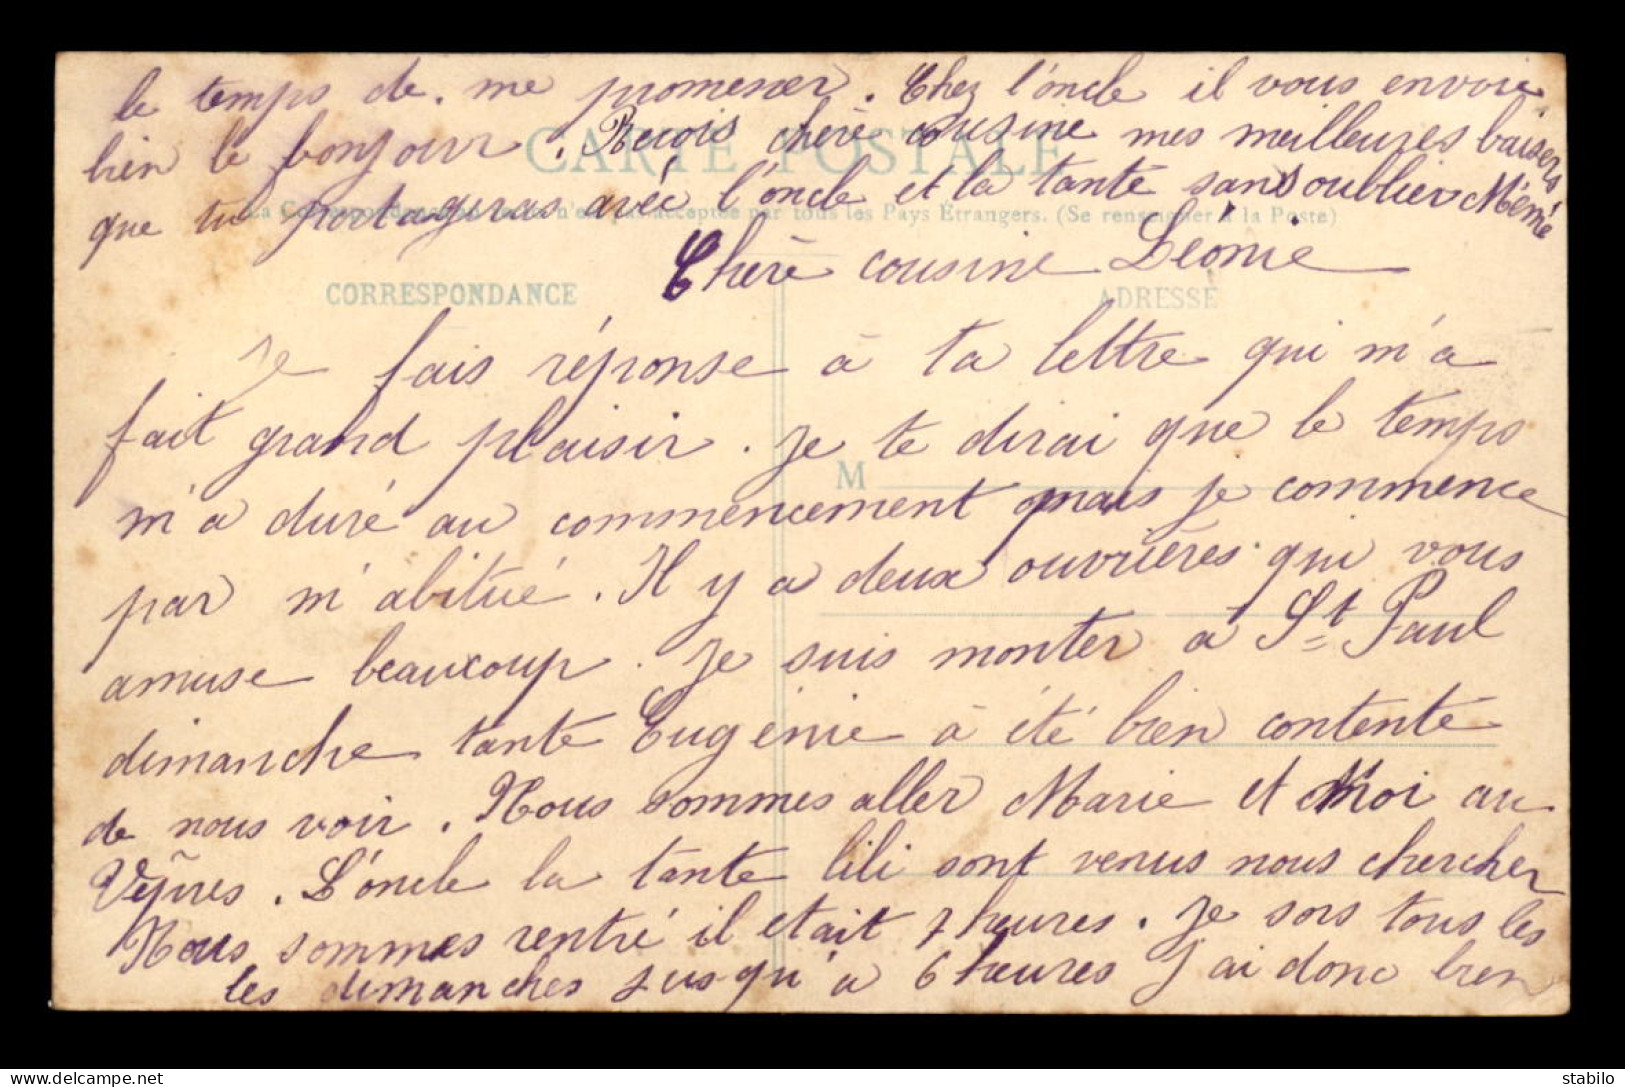 le temps de. me promener. Chez l'oncle il vous envoie
bien le bonjour. Recois chère cousine mes meilleures baisers
CARTE POSTALE
que tu portageras avec l'oncle et la tante sans oublier Mémé
La Correspondance n'est acceptée par tous les Pays Étrangers. (Se renseigner à la Poste)
Chère cousine Léonie
CORRESPONDANCE
ADRESSE
Je fais réponse à ta lettre qui m'a
fait grand plaisir. Je te dirai que le temps
M
m'a duré au commencement mais je commence
par m'abitué. Il y a deux ouvrières qui vous
amuse beaucoup. Je suis monter à St Paul
dimanche tante Eugénie à été bien contente
de nous voir. Nous sommes aller Marie et Moi au
Vêpres. L'oncle la tante lili sont venus nous chercher
Nous sommes rentré il etait 7 heures. Je sors tous les
les dimanches jusqu'à 6 heures J'ai donc bien
stabilo